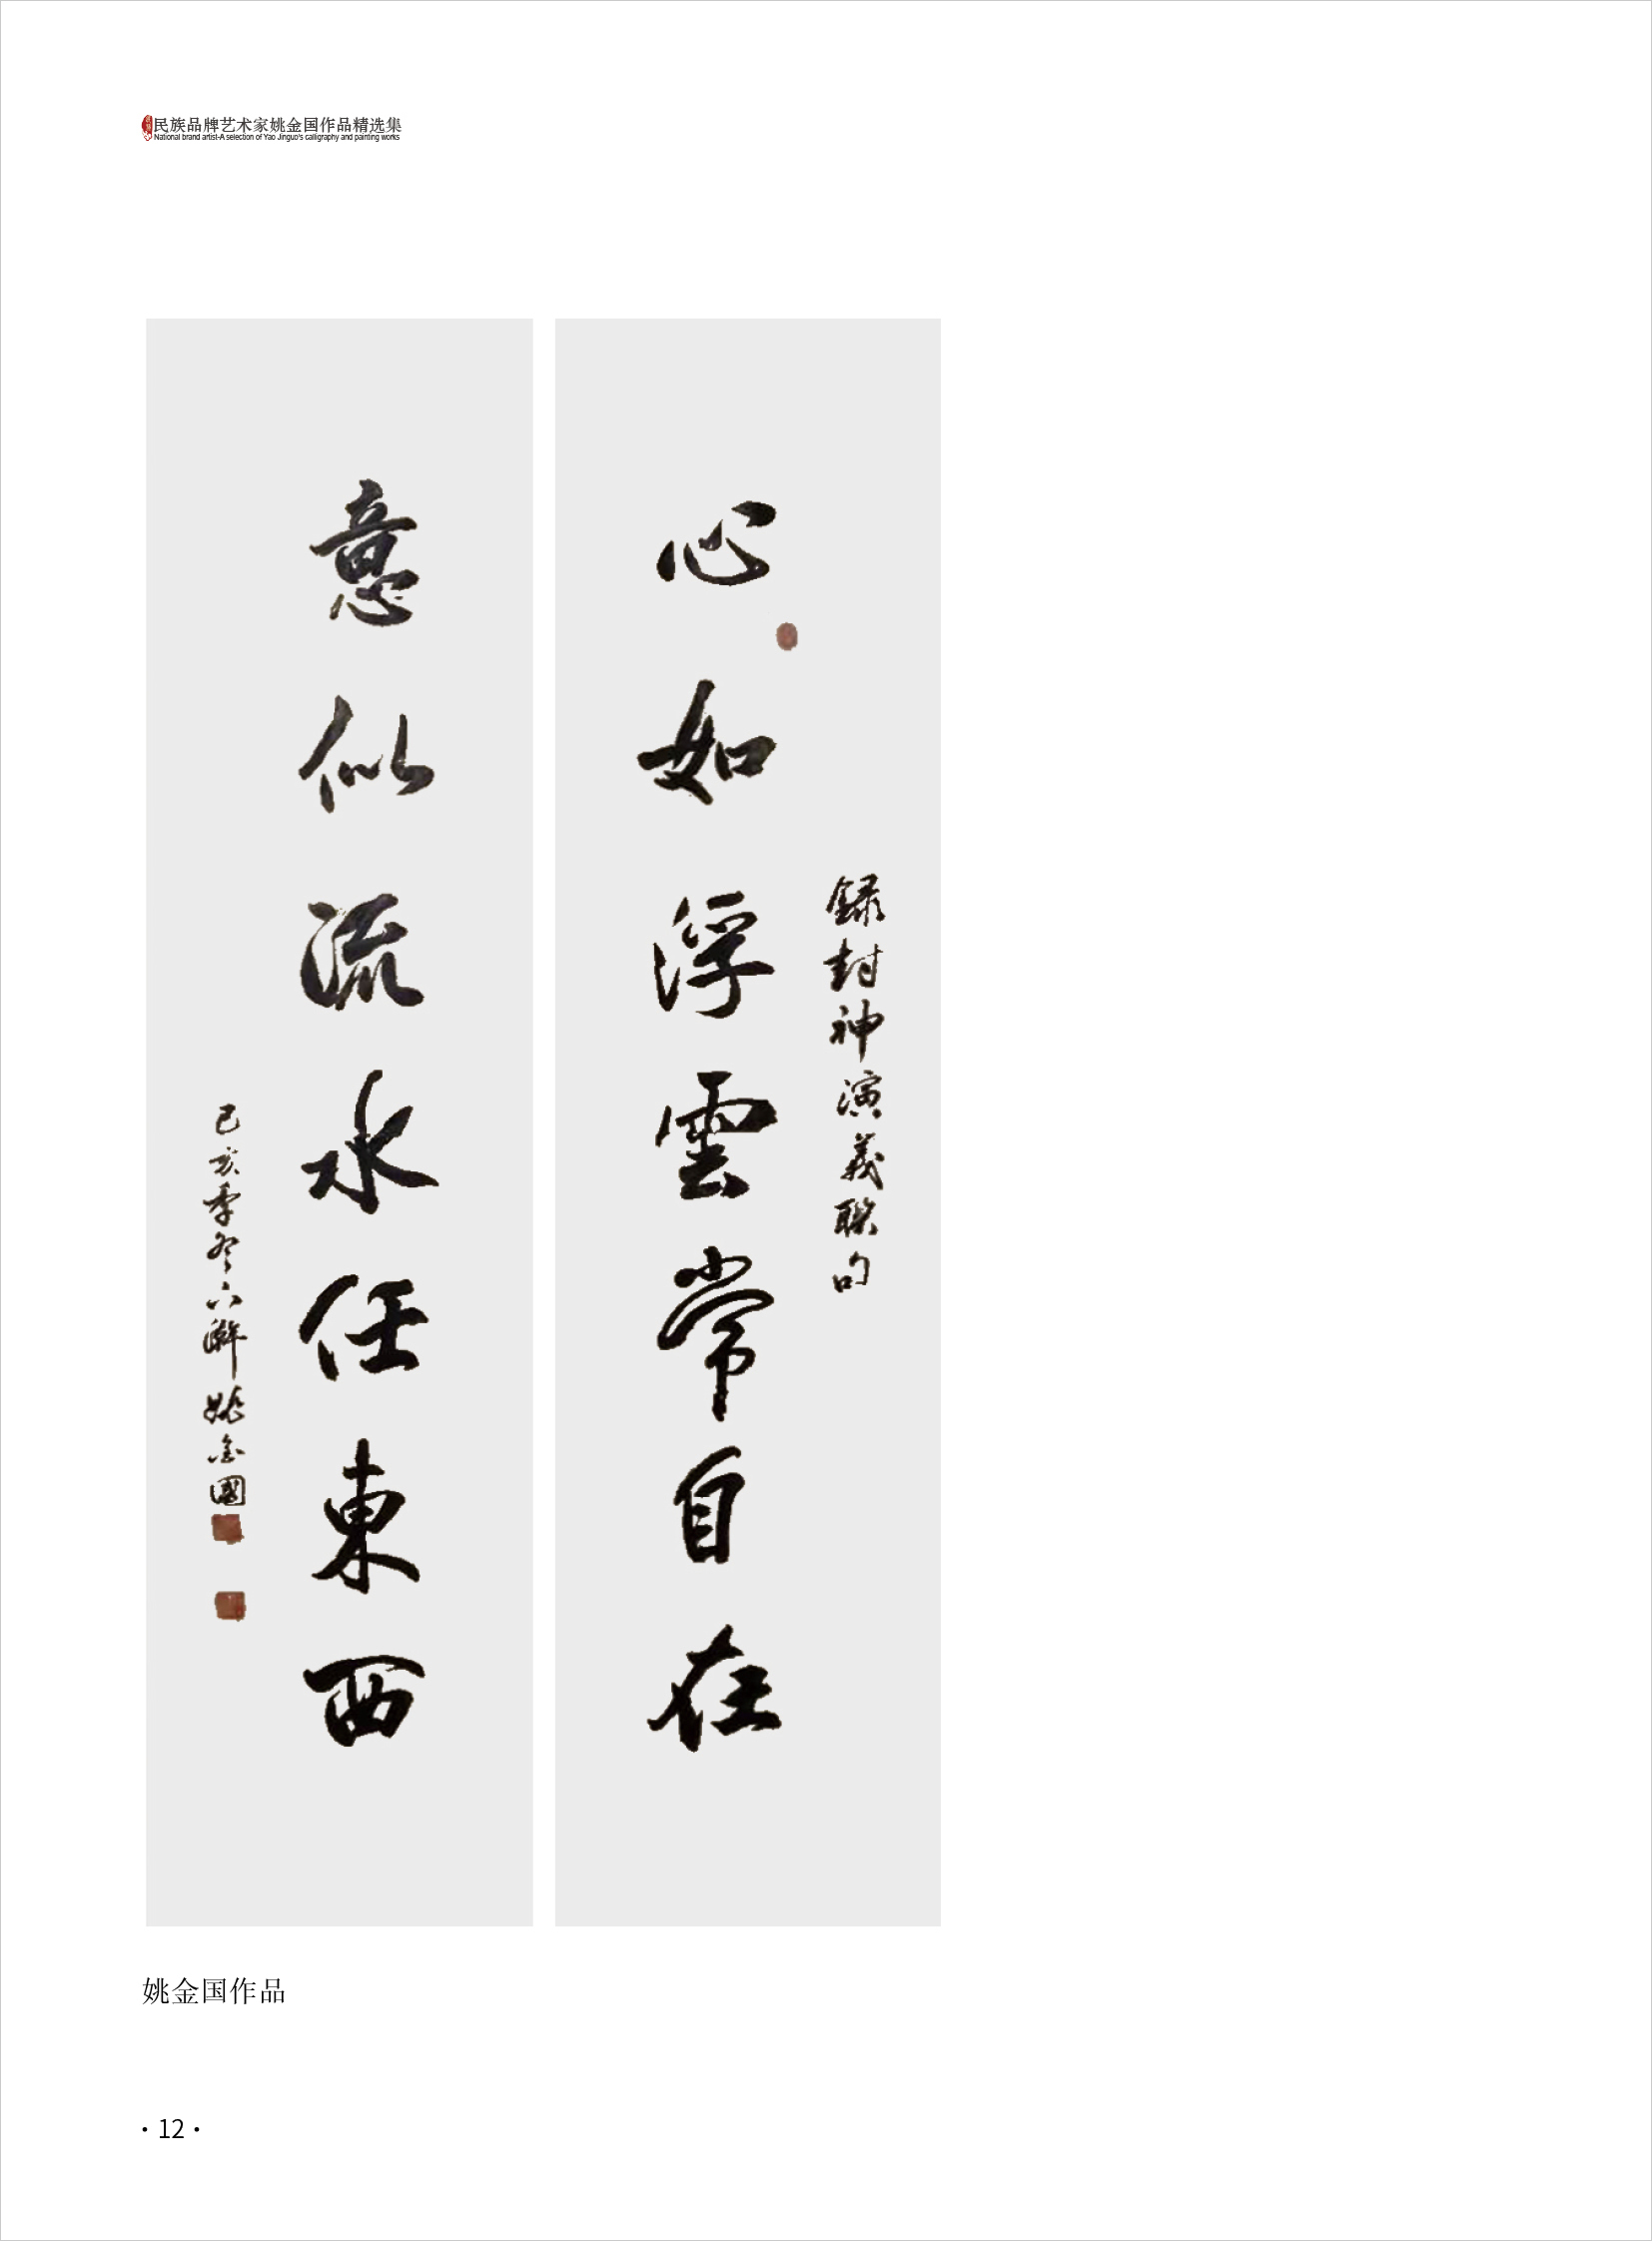 民族品牌艺术家姚金国作品精选集
National brand artist-A selection of Yao Jinguo's calligraphy and painting works
錄封神演義聯句
心如浮雲常自在
意似流水任東西
己亥季冬六解姚金國
姚金国作品
· 12 ·